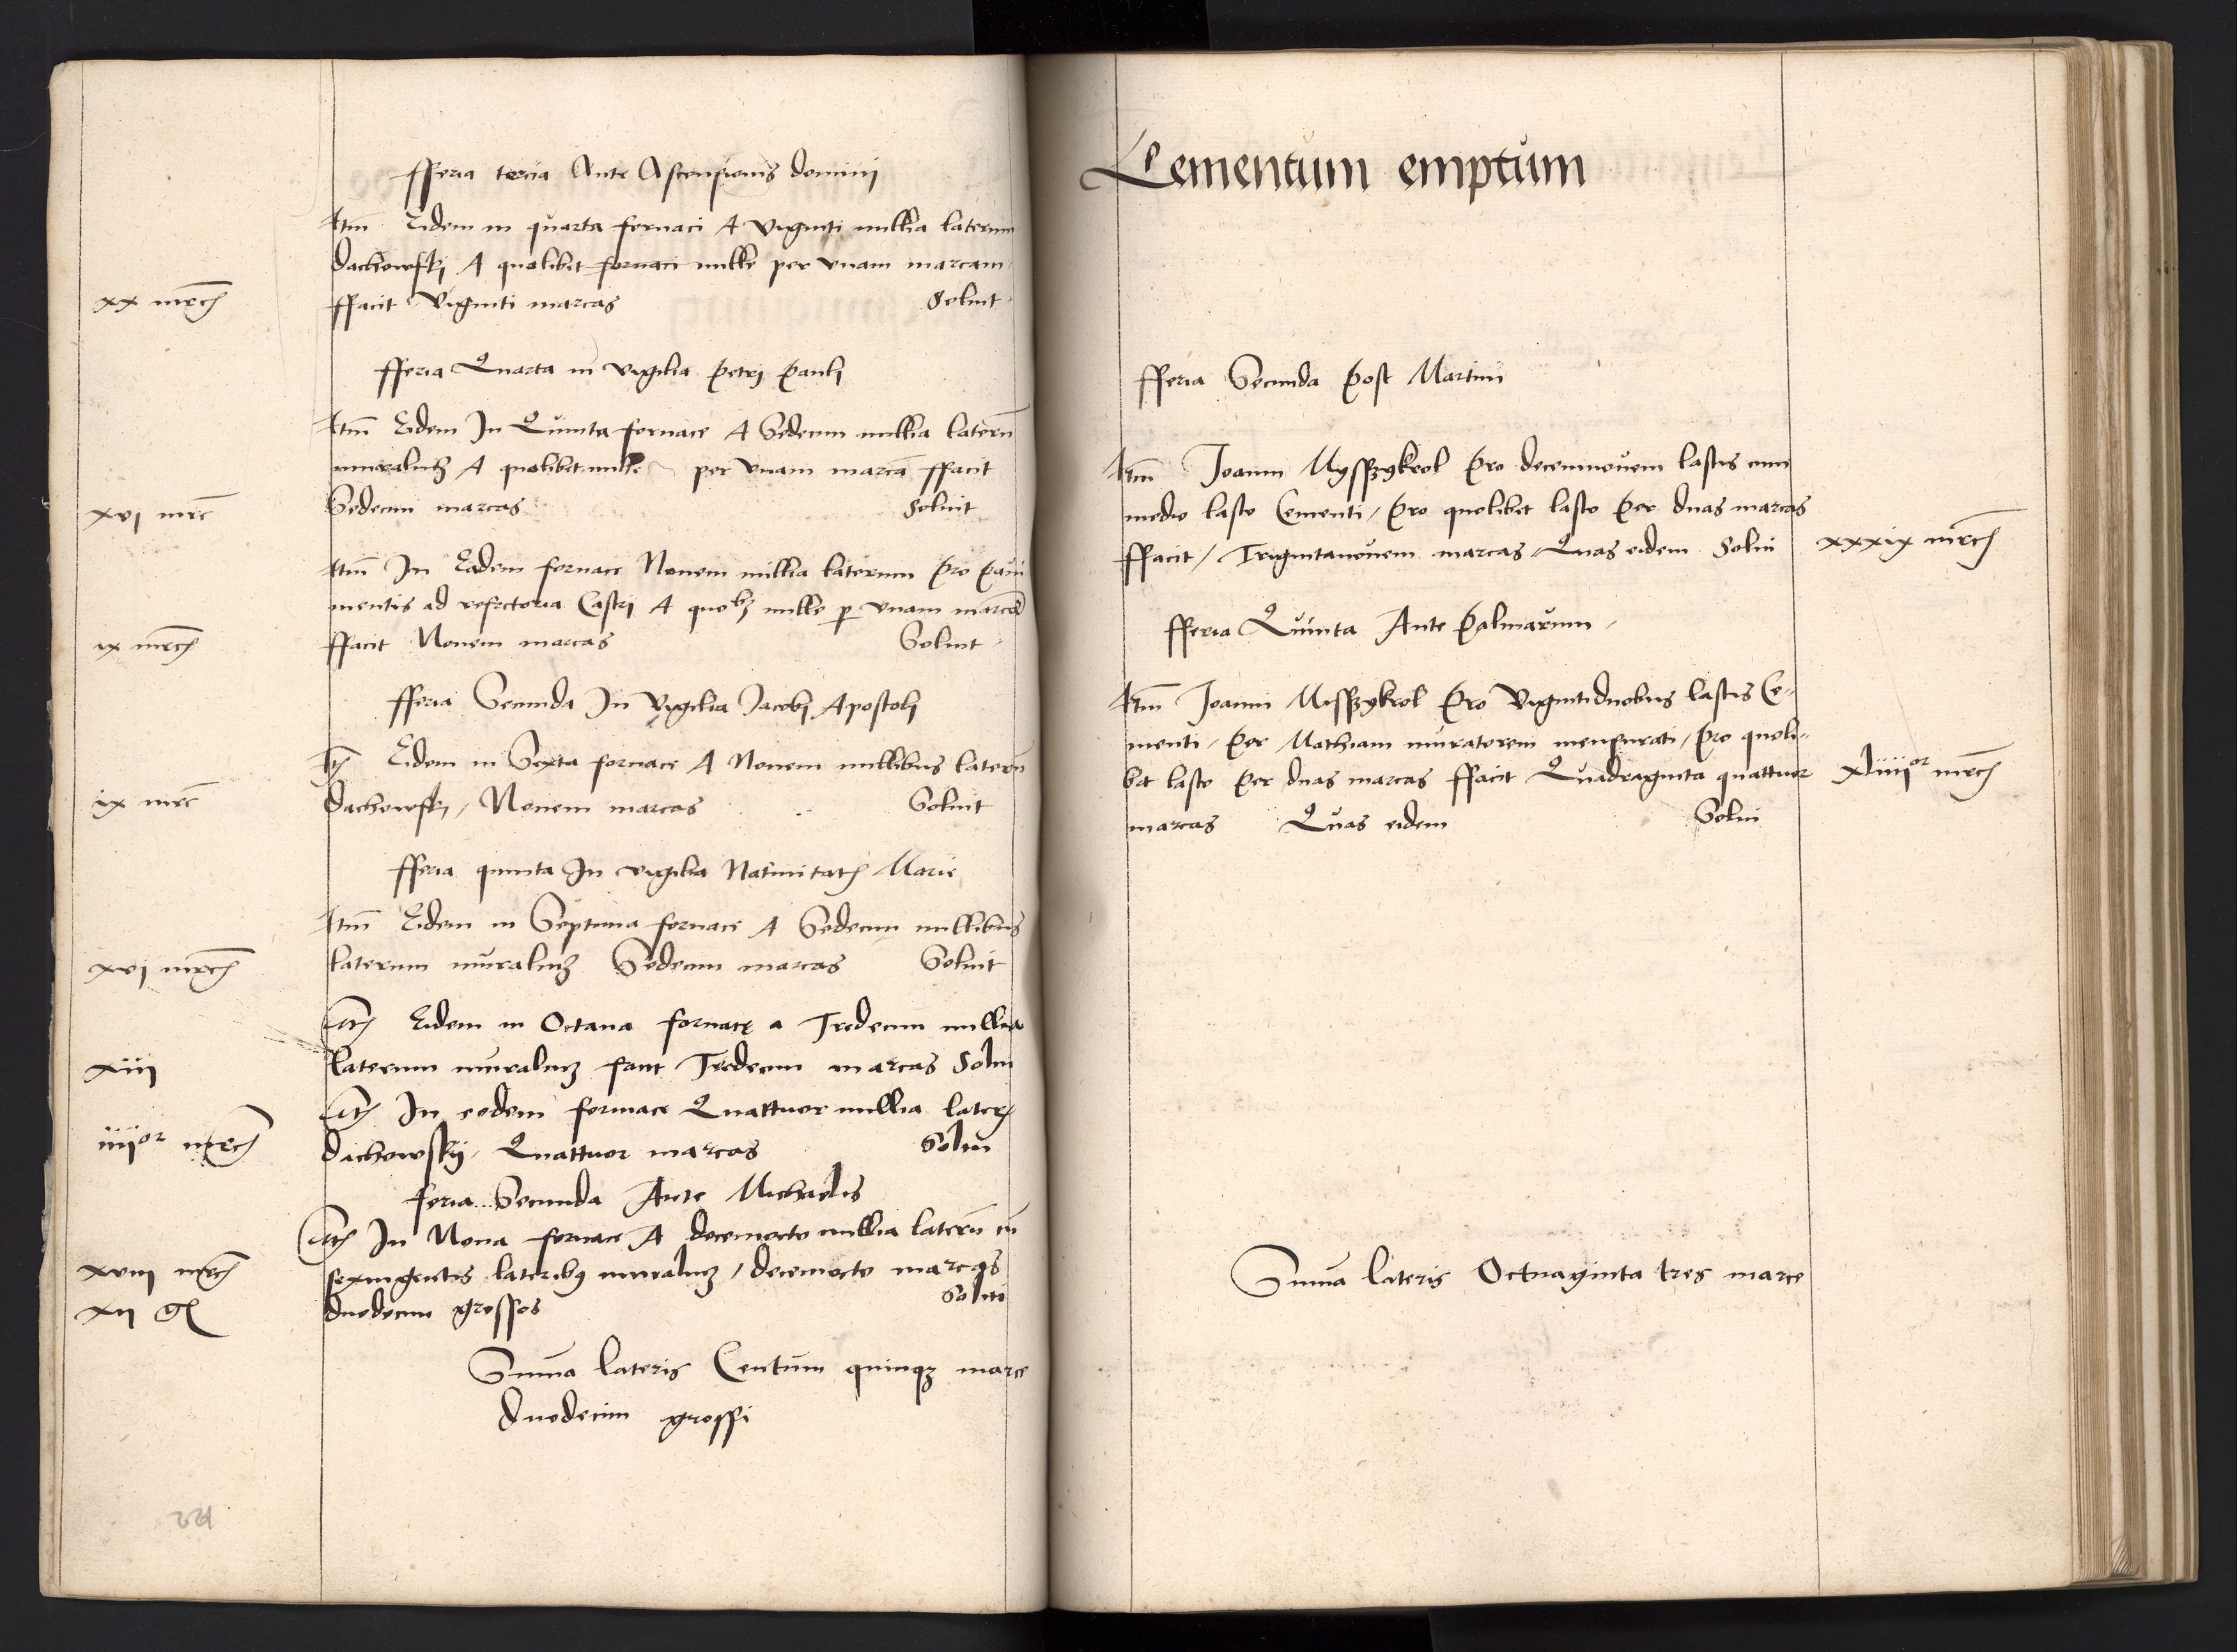 fferia tercia Ante Ascensionis domini
Itm Eidem in quarta fornaci A viginti millia laterum
dachowskj A quolibet fornaci mille per vnam marcam
xx mrc ffacit viginti marcas Soluit
fferia Quarta in vigilia petrj paulj
Itm Eidem In Quinta fornace A Sedecim millia laterum
muralium A quolibet mille per vnam marca ffacit
xvi mrc Sedecim marcas Soluit
Itm In Eadem fornace Nonem millia laterum pro paui
mentis ad refectoria Castri A quolibet mille p vnam marca
ix mrc ffacit Nonem marcas Soluit
fferia Secunda In vigilia Jacobj Apostolj
It Eidem in Sexta fornace A Nonem millibus laterum
ix mrc dachowskj / Nonem marcas Soluit
fferia quinta In vigilia Natiuitatis Marie
Itm Eidem in Septima fornace A Sedecim millibus
xvi mrc laterum muralium Sedecim marcas Soluit
It Eidem in Octaua fornace a Tredecim millia
xiii laterum muralium facit Tredecim marcas Solui
It In eodem fornace Quattuor millia later
iiiior mrc dachowskij / Quattuor marcas Solui
feria Secunda Ante Michaelis
It In Nona fornace A decemocto millia laterum cum
xviii mrc sexingentis lateribus muralium / decemocto marcas
xii g duodecim grossos Solui
Summa lateris Centum quinqz marce
duodecim grossi
Cementum emptum
fferia Secunda post Martini
Itm Joanni Mysszykrol pro decemnouem lastis cum
medio lasto Cementi / pro quolibet lasto per duas marcas
ffacit / Trigintanouem marcas Quas eidem Solui xxxix mrc
fferia Quinta Ante palmarum
Itm Joanni Misszykrol pro vigintiduobus lastis Ce-
menti / per Mathiam muratorem mensurati / pro quoli-
bet lasto per duas marcas ffacit Quadraginta quattuor xliiiior mrc
marcas Quas eidem Solui
Summa lateris Octuaginta tres marce